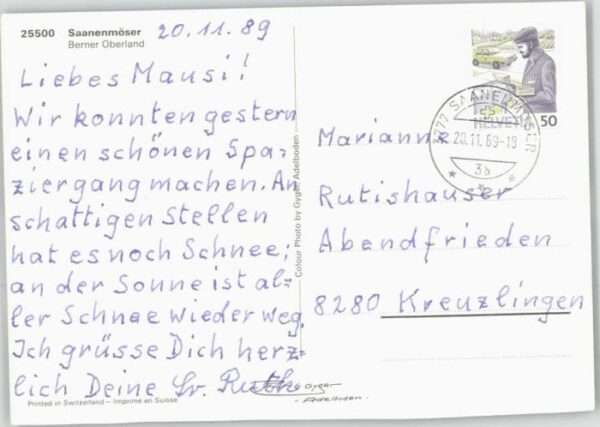 25500 Saanenmöser
Berner Oberland
20.11.89
Liebes Mausi!
Wir konnten gestern
einen schönen Spa-
ziergang machen. An
schattigen Stellen
hat es noch Schnee;
an der Sonne ist al-
ler Schnee wieder weg.
Ich grüsse Dich herz-
lich Deine Sr. Ruth
Printed in Switzerland – Imprimé en Suisse
Colour Photo by Gyger Adelboden
Gyger
Adelboden
50
HELVETIA
3777 SAANENMÖSER
20.11.89-18
Marianne
Rutishauser
Abendfrieden
8280 Kreuzlingen